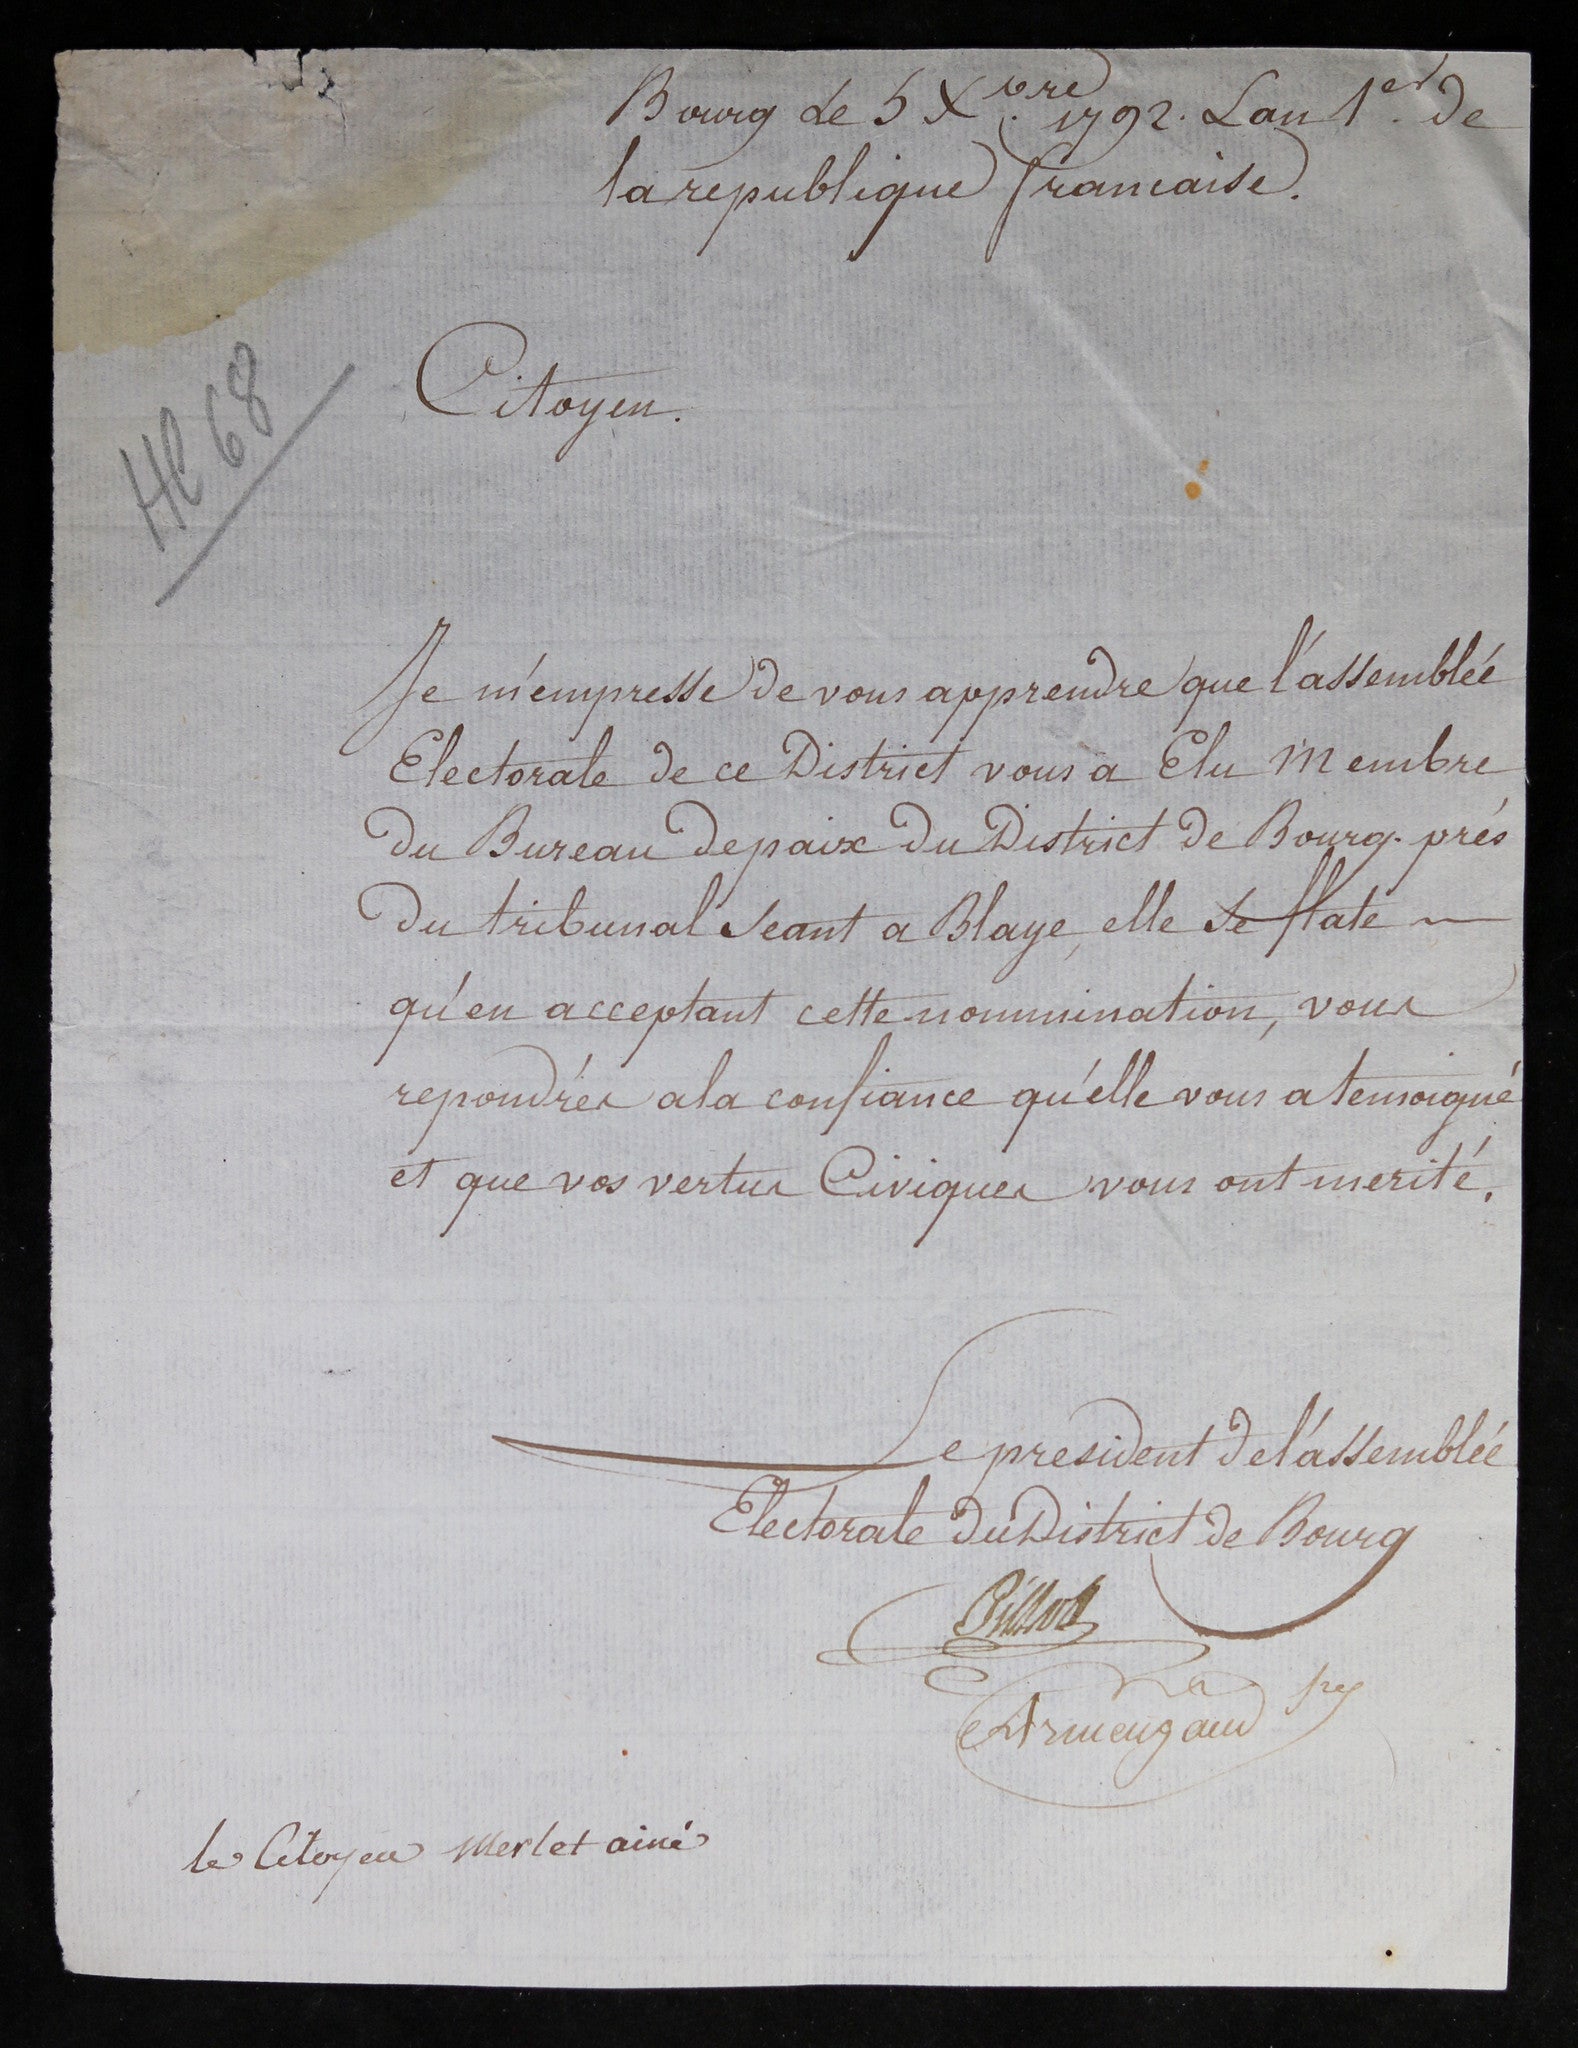 Bourg Le 5 Xbre. 1792. Lan 1er. de
la republique francaise.
HC 68
Citoyen.
Je m'empresse de vous apprendre que l'assemblée
Electorale de ce District vous a Elu Membre
du Bureau depaix du District de Bourg. prés
du tribunal Seant a Blaye, elle se flate
qu'en acceptant cette nommination, vous
repondrés ala confiance qu'elle vous a temoigné
et que vos vertus Civiques vous ont merité.
Le president del'assemblée
Electorale du District de Bourg
Armengaud
le Citoyen Merlet ainé